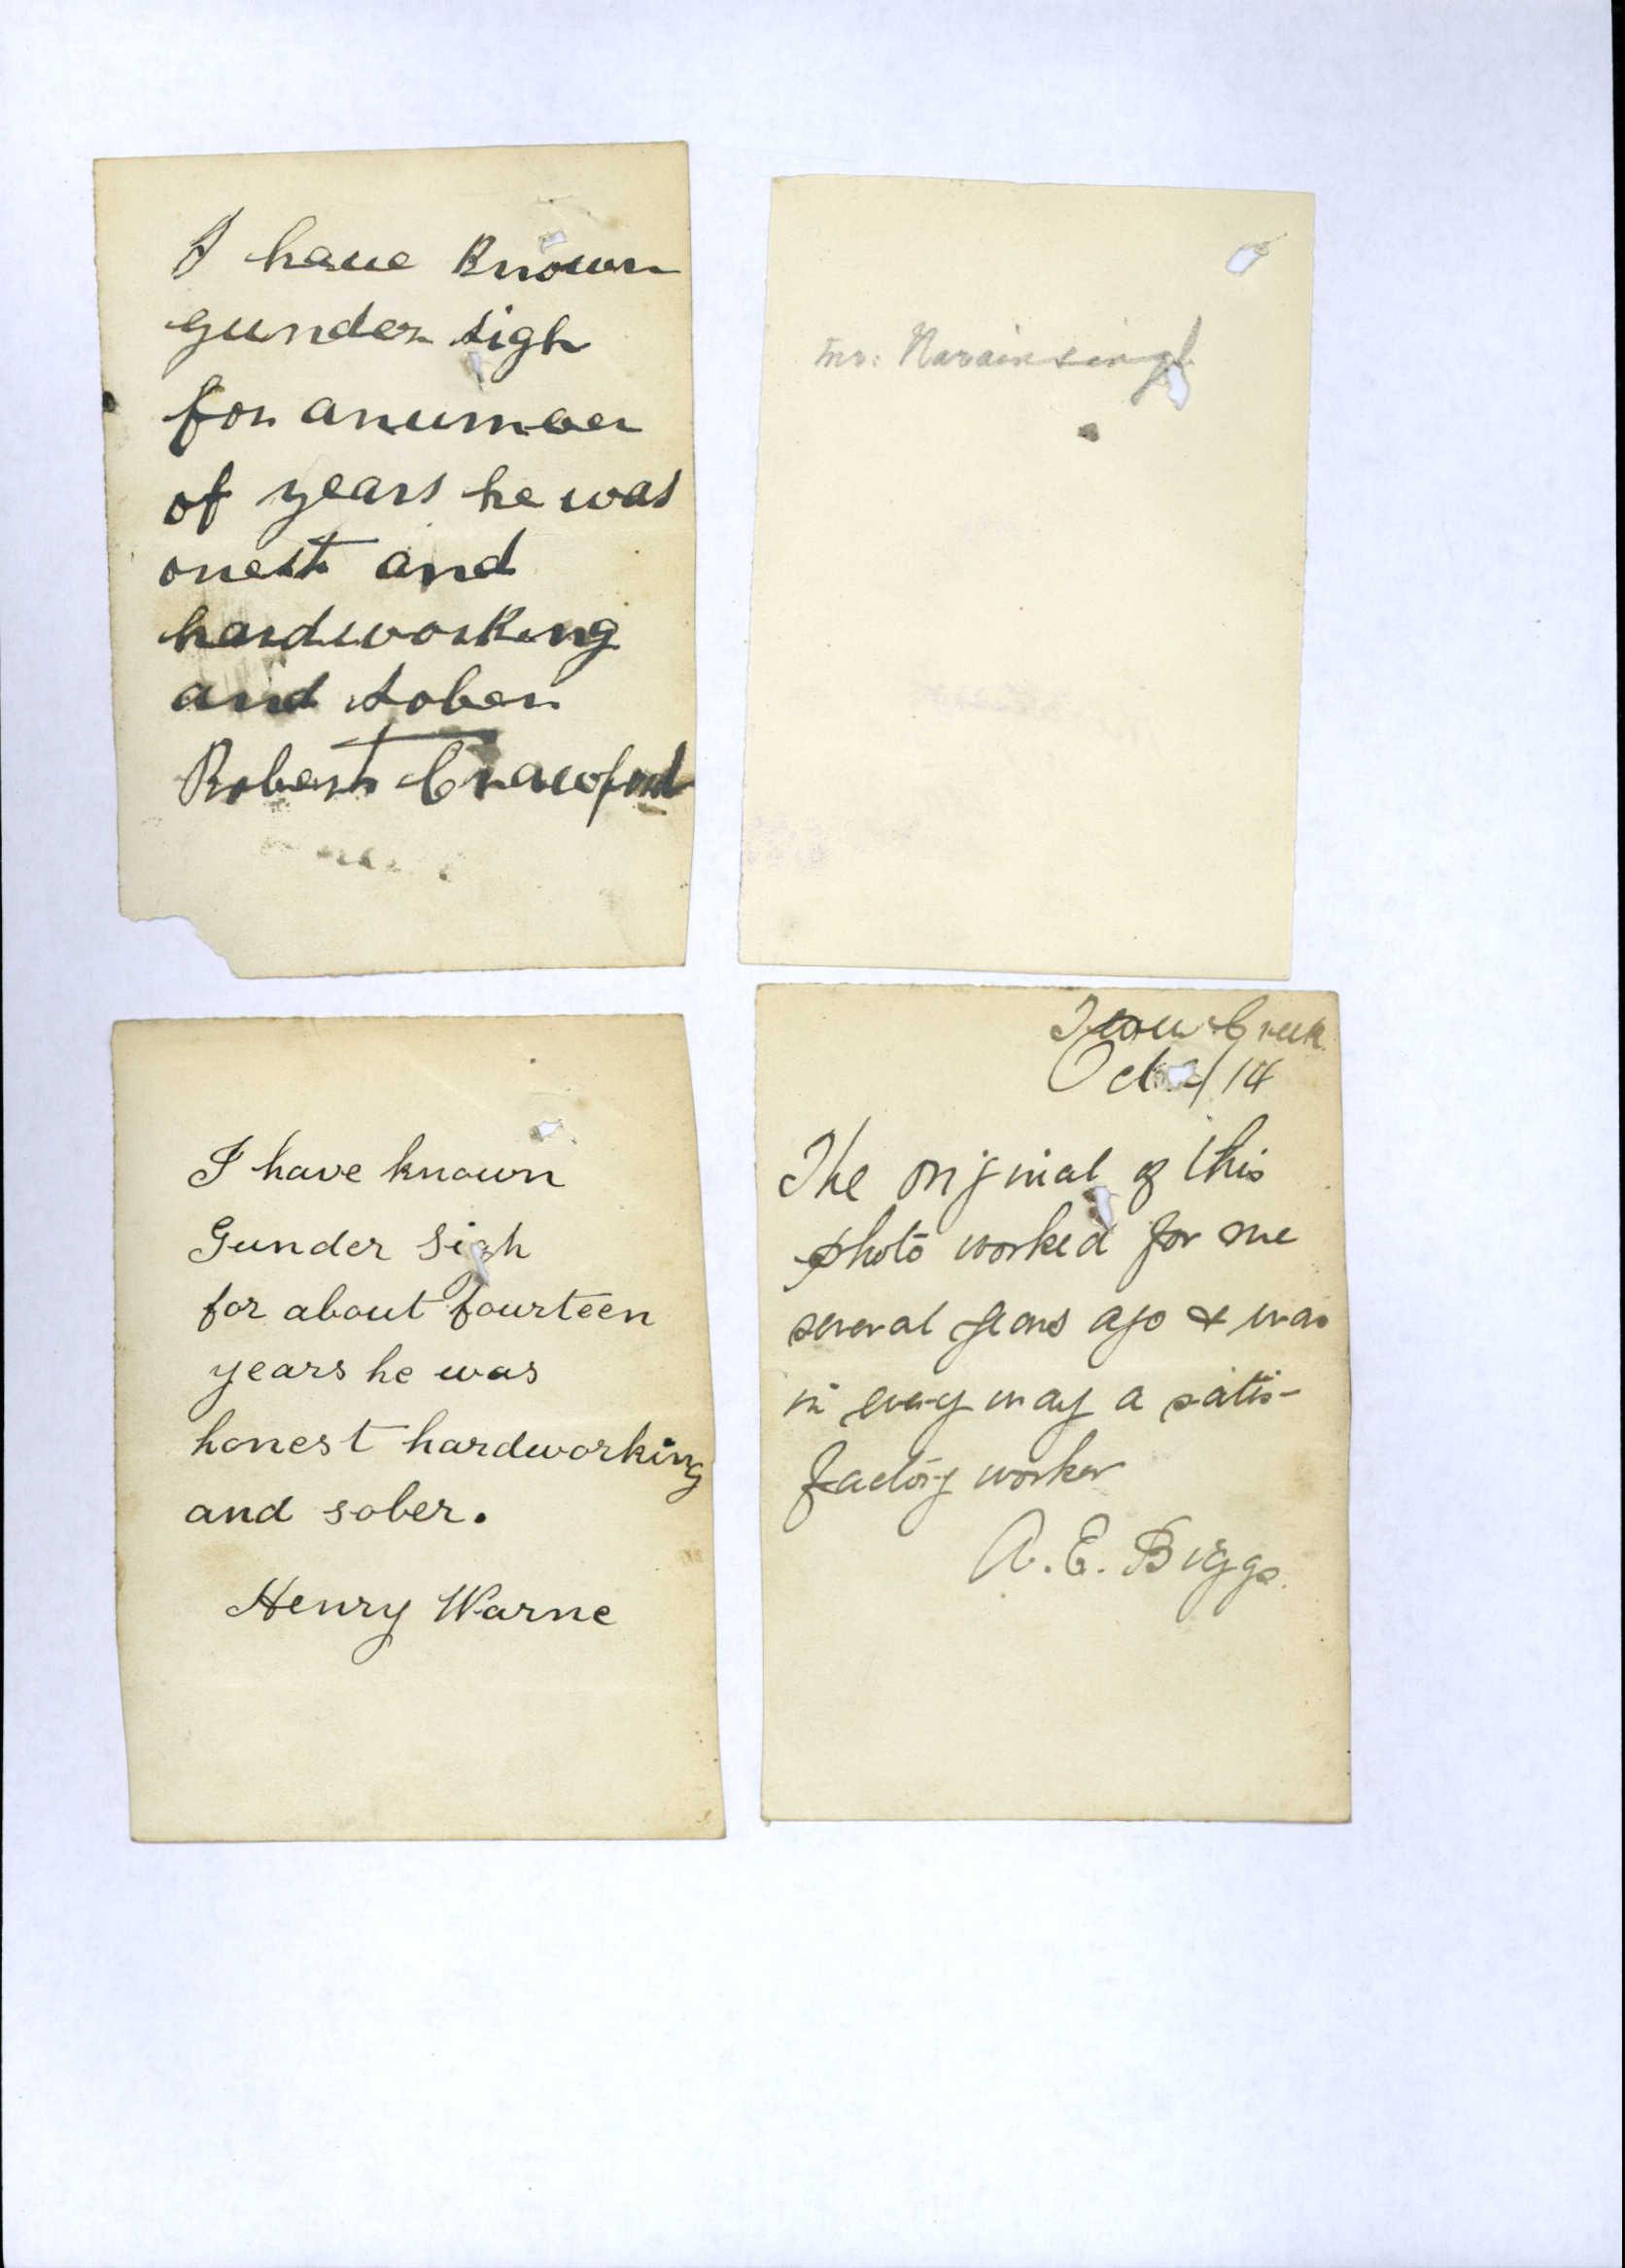 I have Known
gunder sigh
for anumber
of years he was
onest and
hardworking
and sober
Robert Crawford
Mr: Narain singh
I have known
Gunder Sigh
for about fourteen
years he was
honest hardworking
and sober.
Henry Warne
Creek
Oct /14
The original of this
photo worked for me
several years ago & was
in every way a satis-
factory worker
A. E. Biggs.